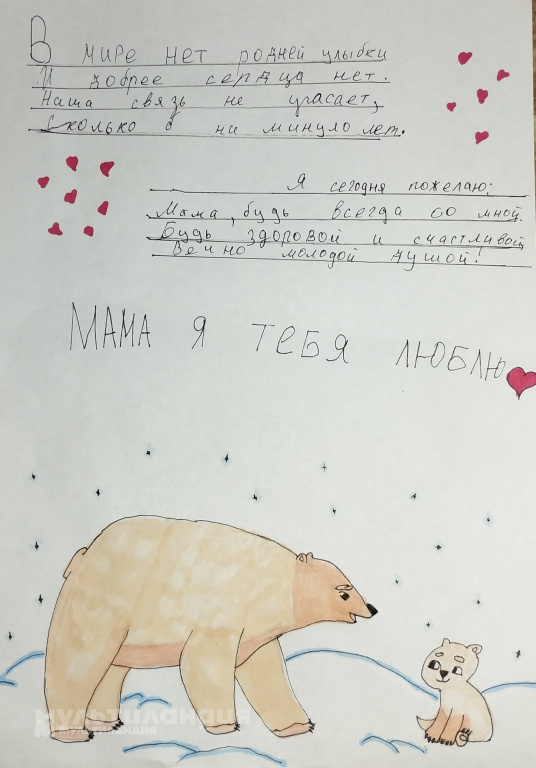 В мире нет родней улыбки
И добрее сердца нет.
Наша связь не угасает,
Сколько б ни минуло лет.
Я сегодня пожелаю:
Мама, будь всегда со мной.
Будь здоровой и счастливой,
Вечно молодой душой!
МАМА Я ТЕБЯ ЛЮБЛЮ
Мультиландия
МУЛЬТИЛАНДИЯ